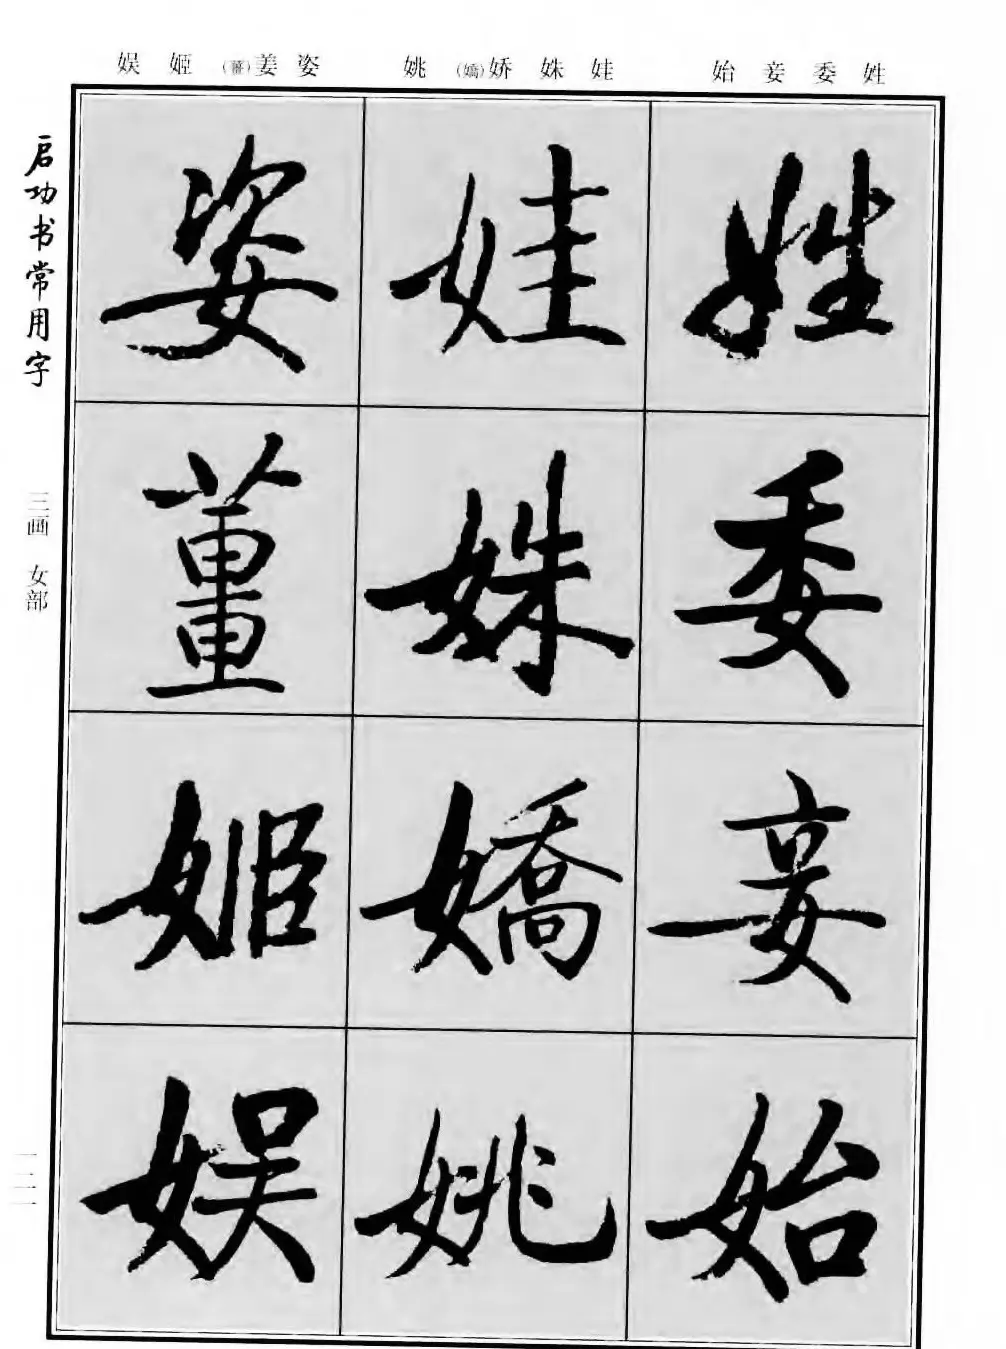 姓委妾始
娃姝娇(嬌)姚
姿姜(薑)姬娱
姓委妾始
娃姝嬌姚
姿薑姬娱
启功书常用字
三画 女部